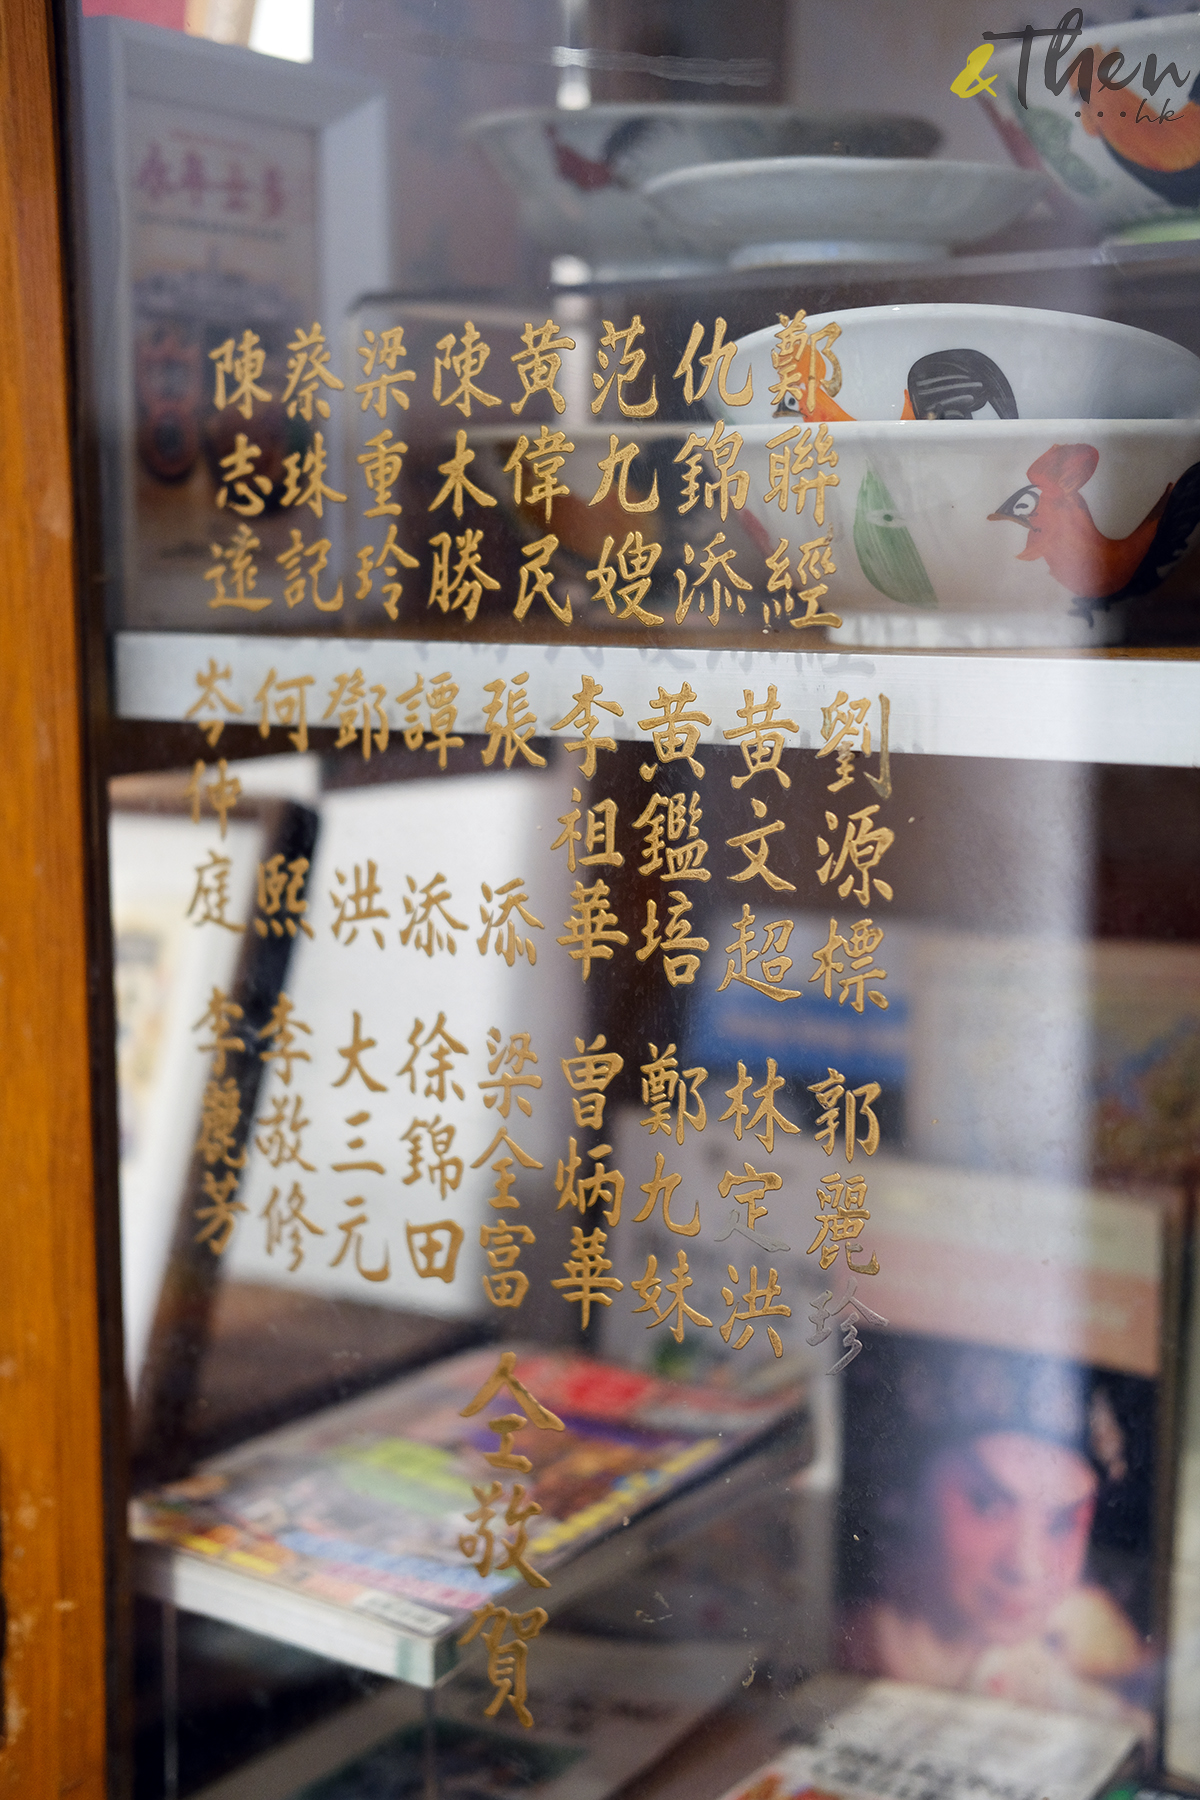 &Then
...hk
永年士多
鄭聯經
仇錦添
范九嫂
黃偉民
陳木勝
梁重玲
蔡珠記
陳志遠
劉源標
黃文超
黃鑑培
李祖華
張添
譚添
鄧洪
何熙
岑仲庭
郭麗珍
林定洪
鄭九妹
曾炳華
梁全富
徐錦田
大三元
李敬修
李麗芳
仝敬賀